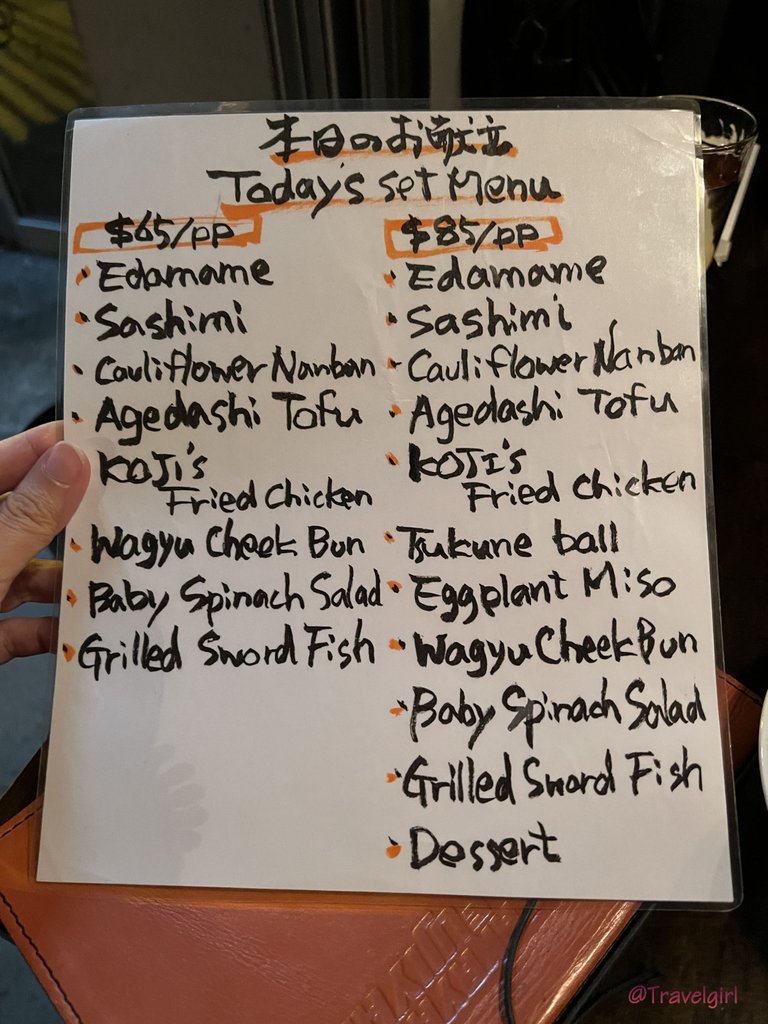 本日のお献立
Today's Set Menu
$65/pp
Edamame
Sashimi
Cauliflower Nanban
Agedashi Tofu
KOJI's
Fried Chicken
Wagyu Cheek Bun
Baby Spinach Salad
Grilled Sword Fish
$85/pp
Edamame
Sashimi
Cauliflower Nanban
Agedashi Tofu
KOJI's
Fried Chicken
Tsukune ball
Eggplant Miso
Wagyu Cheek Bun
Baby Spinach Salad
Grilled Sword Fish
Dessert
@Travelgirl